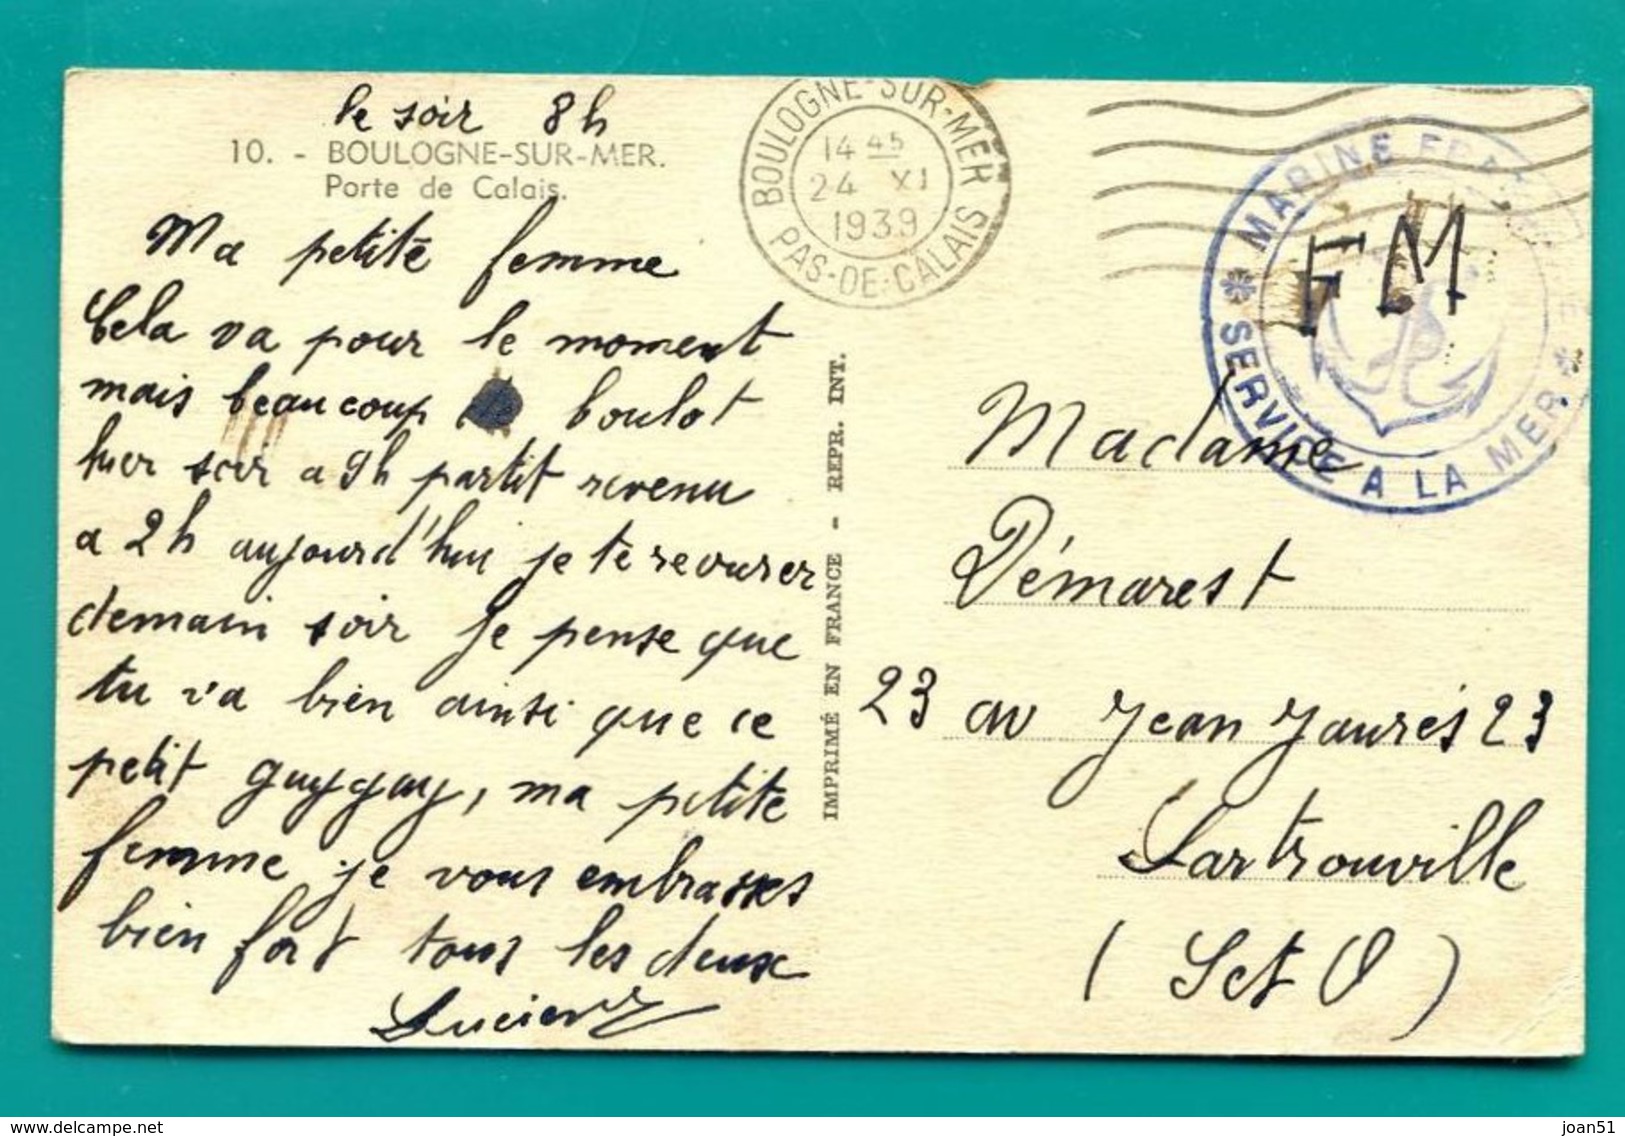 le soir 8h
10. - BOULOGNE-SUR-MER.
Porte de Calais.
Ma petite femme
Cela va pour le moment
mais beaucoup de boulot
hier soir a 9h partit revenu
a 2h aujourd'hui je te
demain soir je pense que
tu va bien ainsi que ce
petit guyguy, ma petite
femme je vous embrasses
bien fort tous les deux
Lucien
IMPRIMÉ EN FRANCE - REPR. INT.
BOULOGNE-SUR-MER
14 45
24 XI
1939
PAS-DE-CALAIS
MARINE FRANÇAISE
SERVICE A LA MER
FM
Madame
Démarest
23 av Jean Jaurés 23
Sartrouville
(S et O)
joan51